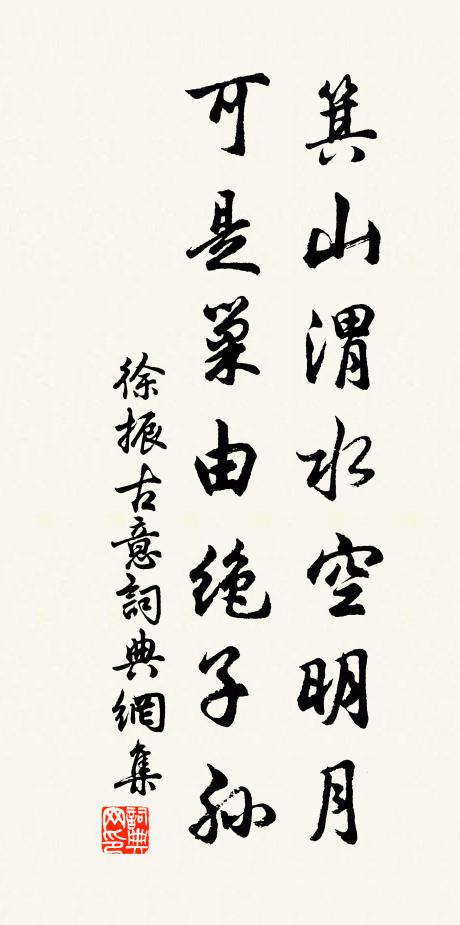 箕山渭水空明月
可是巢由绝子孙
徐振古意詞典網集
詞典网印